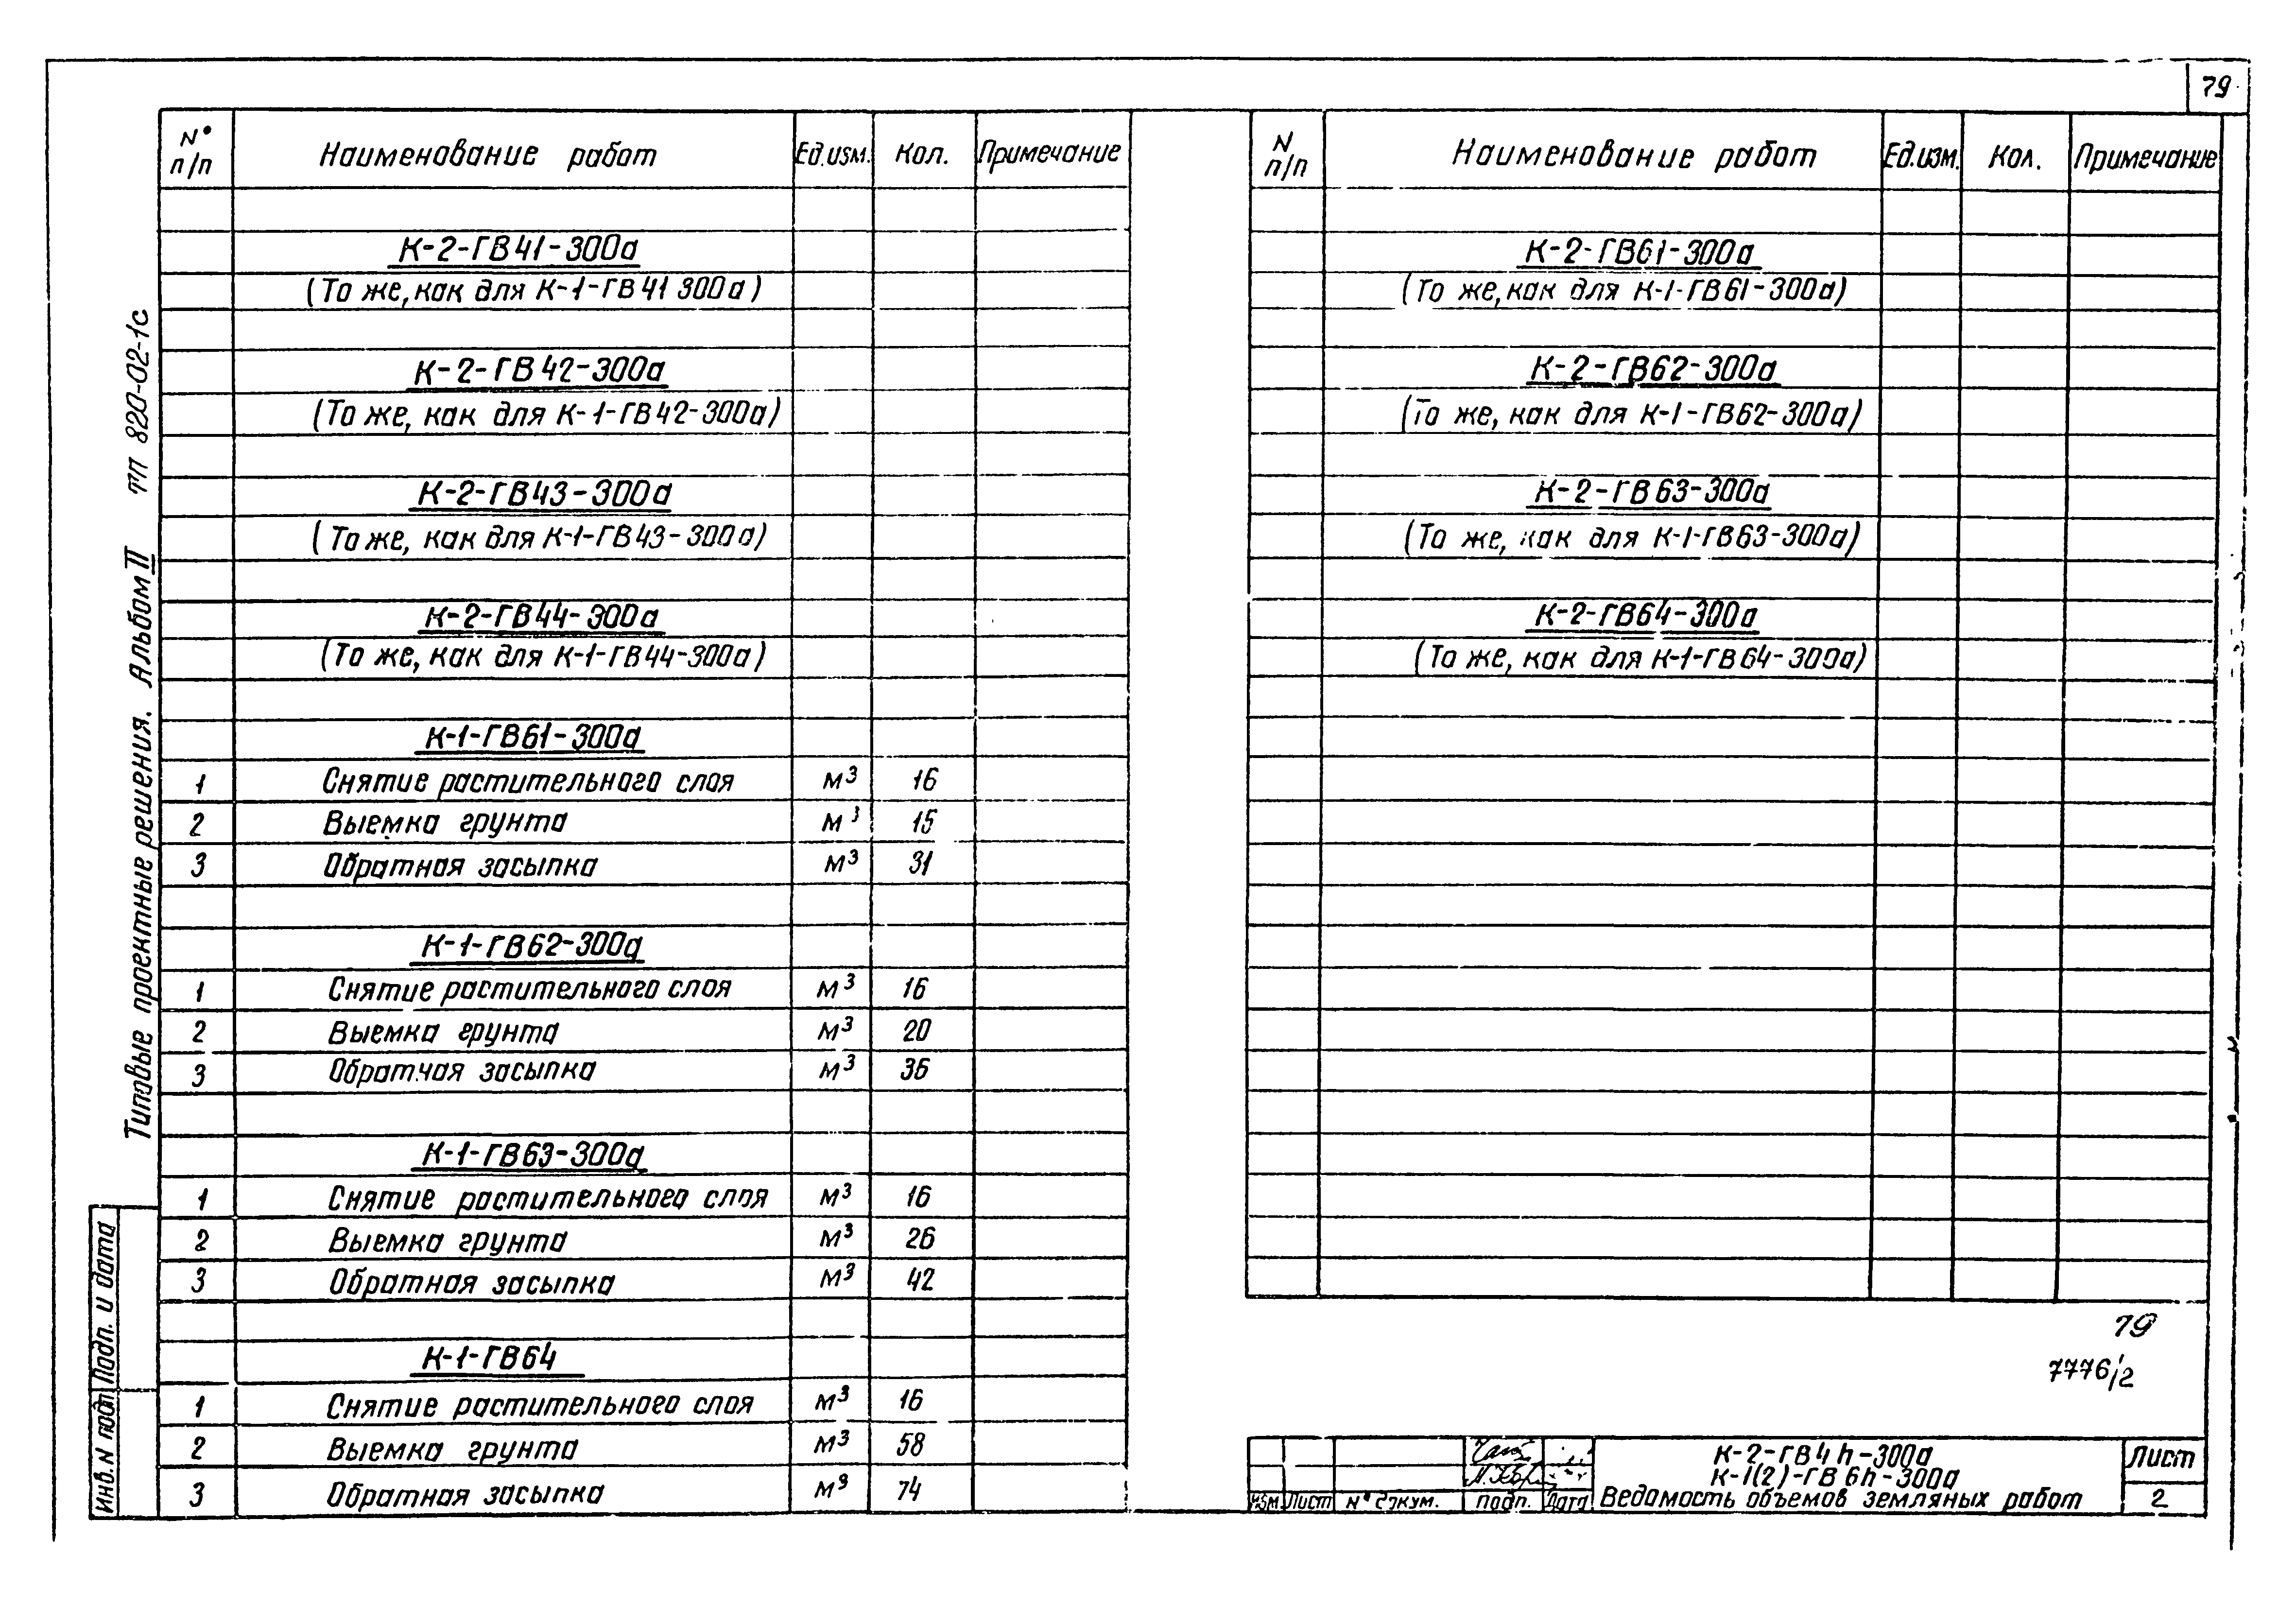 79
N° п/п Наименование работ Ед.изм. Кол. Примечание
К-2-ГВ41-300а
(То же, как для К-1-ГВ41 300а)
К-2-ГВ42-300а
(То же, как для К-1-ГВ42-300а)
К-2-ГВ43-300а
(То же, как для К-1-ГВ43-300а)
К-2-ГВ44-300а
(То же, как для К-1-ГВ44-300а)
К-1-ГВ61-300а
1 Снятие растительного слоя м³ 16
2 Выемка грунта м³ 15
3 Обратная засыпка м³ 31
К-1-ГВ62-300а
1 Снятие растительного слоя м³ 16
2 Выемка грунта м³ 20
3 Обратная засыпка м³ 36
К-1-ГВ63-300а
1 Снятие растительного слоя м³ 16
2 Выемка грунта м³ 26
3 Обратная засыпка м³ 42
К-1-ГВ64
1 Снятие растительного слоя м³ 16
2 Выемка грунта м³ 58
3 Обратная засыпка м³ 74
N п/п Наименование работ Ед.изм. Кол. Примечание
К-2-ГВ61-300а
(То же, как для К-1-ГВ61-300а)
К-2-ГВ62-300а
(То же, как для К-1-ГВ62-300а)
К-2-ГВ63-300а
(То же, как для К-1-ГВ63-300а)
К-2-ГВ64-300а
(То же, как для К-1-ГВ64-300а)
79
7776/2
К-2-ГВ4h-300а
К-1(2)-ГВ6h-300а
Ведомость объемов земляных работ
Лист
2
Изм. Лист N° докум. Подп. Дата
Типовые проектные решения. Альбом II ТП 820-02-1с
Инв. N подл Подп. и дата